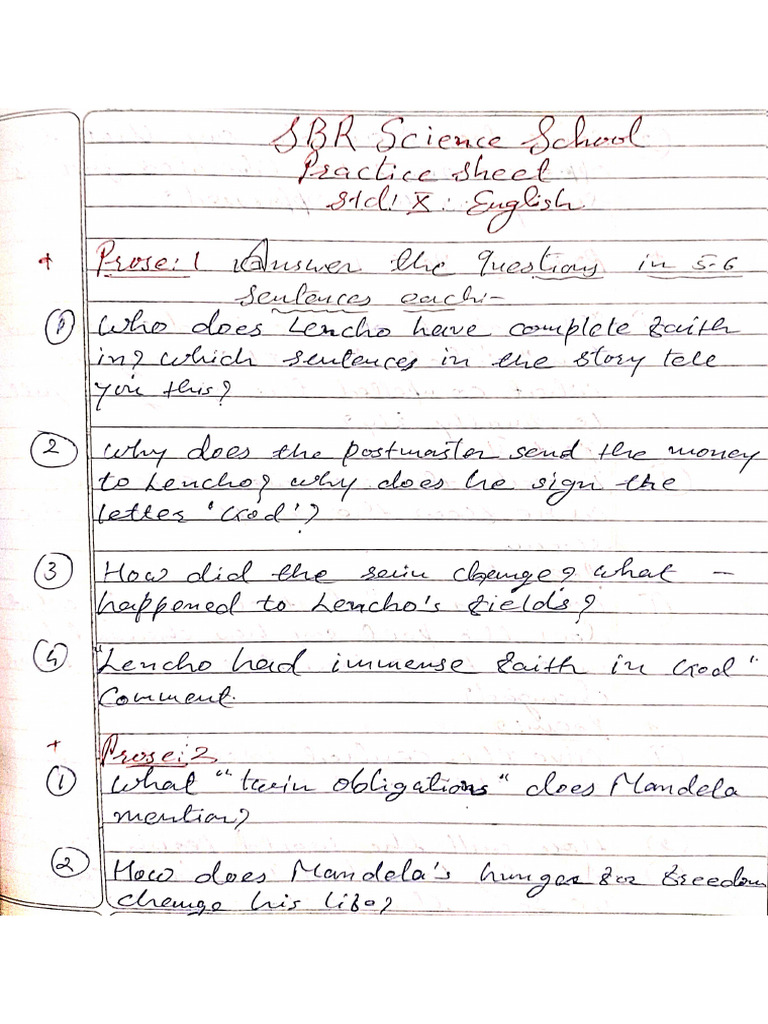 SBR Science School
Practice sheet
Std: X : English
+ Prose: 1 Answer the questions in 5-6
sentences each:-
① Who does Lencho have complete faith
in? which sentences in the story tell
you this?
② Why does the postmaster send the money
to Lencho? why does he sign the
letter 'God'?
③ How did the rain change? what -
happened to Lencho's fields?
④ "Lencho had immense faith in God"
Comment.
+ Prose: 2
① What "twin obligations" does Mandela
mention?
② How does Mandela's hunger for freedom
change his life?